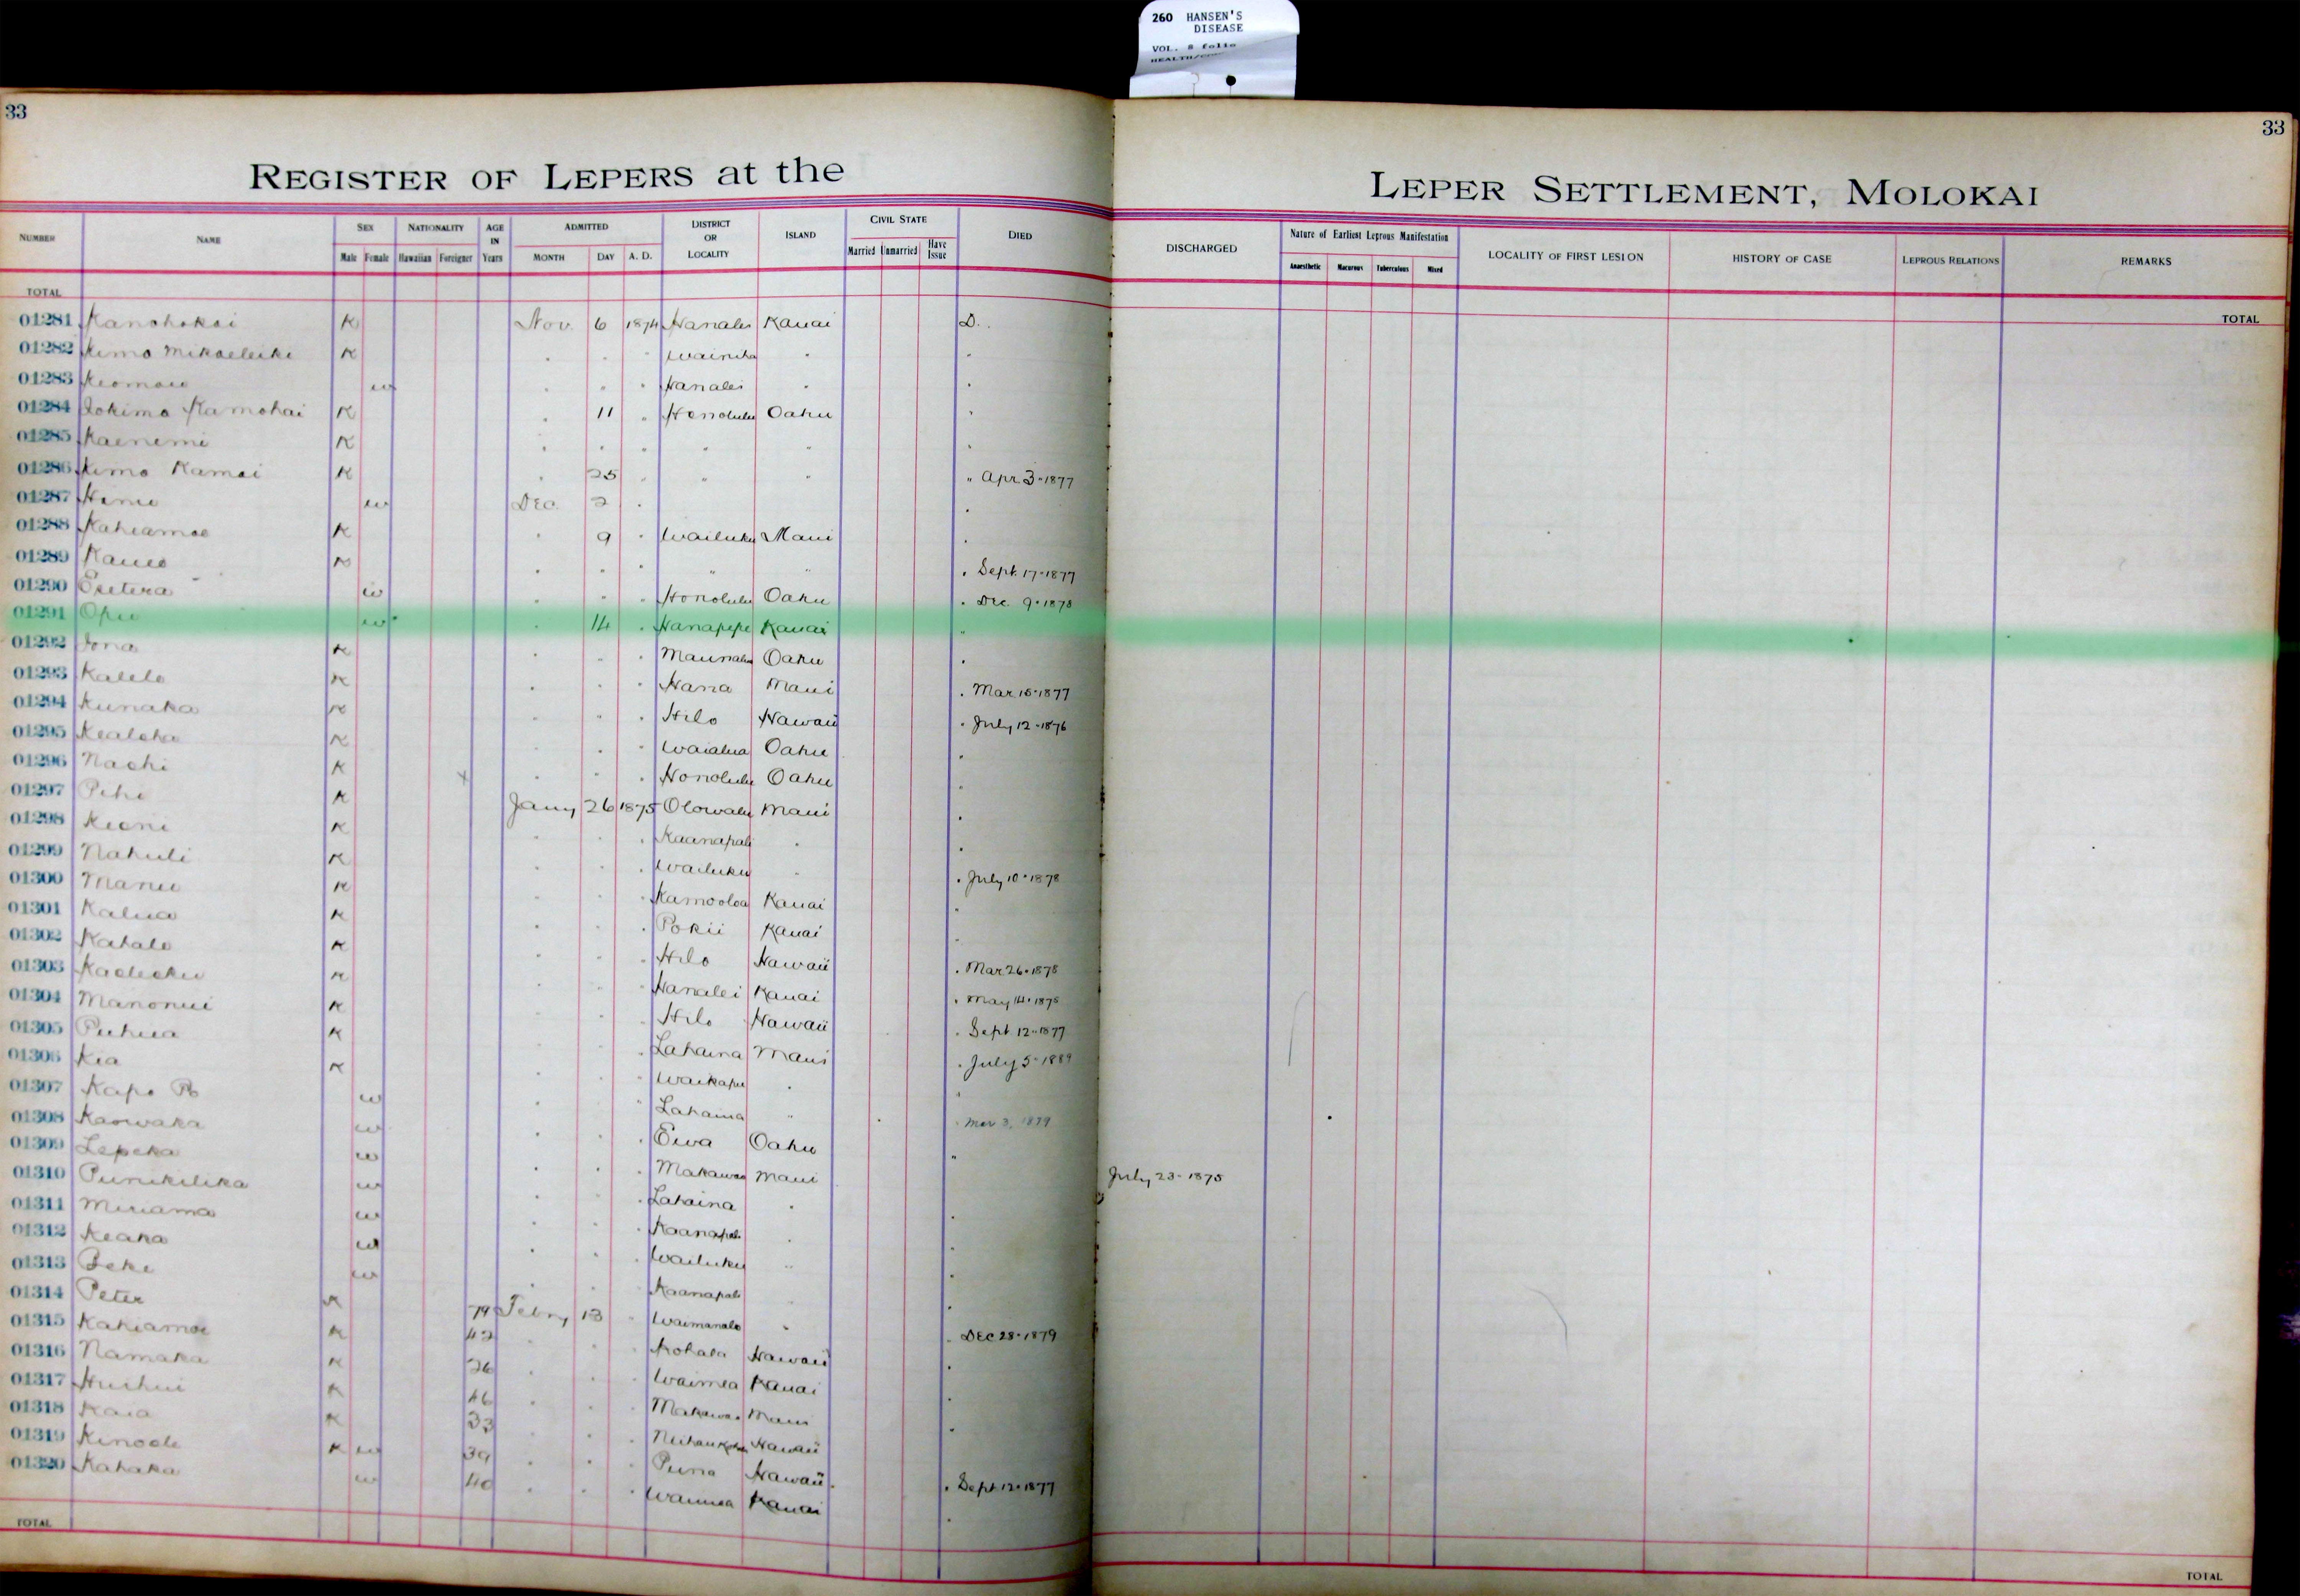 260 HANSEN'S
DISEASE
VOL. 8 folio
33
33
REGISTER OF LEPERS at the LEPER SETTLEMENT, MOLOKAI
NUMBER NAME SEX NATIONALITY AGE IN Years ADMITTED DISTRICT OR LOCALITY ISLAND CIVIL STATE DIED DISCHARGED Nature of Earliest Leprous Manifestation LOCALITY OF FIRST LESION HISTORY OF CASE LEPROUS RELATIONS REMARKS
Male Female Hawaiian Foreigner MONTH DAY A. D. Married Unmarried Have Issue Anaesthetic Macurous Tuberculous Mixed
TOTAL TOTAL
01281 Kanohokai K Nov. 6 1874 Hanalei Kauai D.
01282 Kimo Mikaeleike K " " " Wainiha " "
01283 Keomaio w " " " Hanalei " "
01284 Iokimo Kamohai K " 11 " Honolulu Oahu "
01285 Kaenemi K " " " " " "
01286 Kimo Kamai K " 25 " " " " Apr 3-1877
01287 w Dec 2 " "
01288 Kahiamoe K " 9 " Wailuku Maui "
01289 K " " " " " " Sept. 17-1877
01290 w " " " Honolulu Oahu " Dec. 9-1878
01291 Opu w " 14 " Hanapepe Kauai "
01292 Iona K " " " Maunalua Oahu "
01293 Kalelo K " " " Hana Maui " Mar 15-1877
01294 Kunaka K " " " Hilo Hawaii " July 12-1876
01295 Kealoha K " " " Waialua Oahu "
01296 Naohi K " " " Honolulu Oahu "
01297 Pihi K Jany 26 1875 Olowalu Maui "
01298 Keoni K " " " Kaanapali " "
01299 Nahuli K " " " Wailuku " " July 10-1878
01300 Manu K " " " Kamooloa Kauai "
01301 Kalua K " " " Pokii Kauai "
01302 Kahalo K " " " Hilo Hawaii " Mar 26-1878
01303 K " " " Hanalei Kauai " May 14-1875
01304 Manonui K " " " Hilo Hawaii " Sept 12-1877
01305 Puhua K " " " Lahaina Maui " July 5-1889
01306 Kia K " " " Waikapu " "
01307 Kapo w " " " Lahaina " " Mar 3, 1879
01308 Kaowaka w " " " Ewa Oahu "
01309 Lepeka w " " " Makawao Maui July 23-1875
01310 Punikilika w " " " Lahaina " "
01311 Miriama w " " " Kaanapali " "
01312 Keaka w " " " Wailuku " "
01313 Beke w " " " Kaanapali " "
01314 Peter K 79 Febry 13 " Waimanalo " " DEC 28-1879
01315 Kahiamoe K 42 " " " Kohala Hawaii "
01316 Namaka K 26 " " " Waimea Kauai "
01317 Huihui K 46 " " " Makawao Maui "
01318 Kaia K 33 " " " Hawaii
01319 Kinoole K w 39 " " " Puna Hawaii " Sept 12-1877
01320 Kahaka w 40 " " " Waimea Kauai "
TOTAL TOTAL